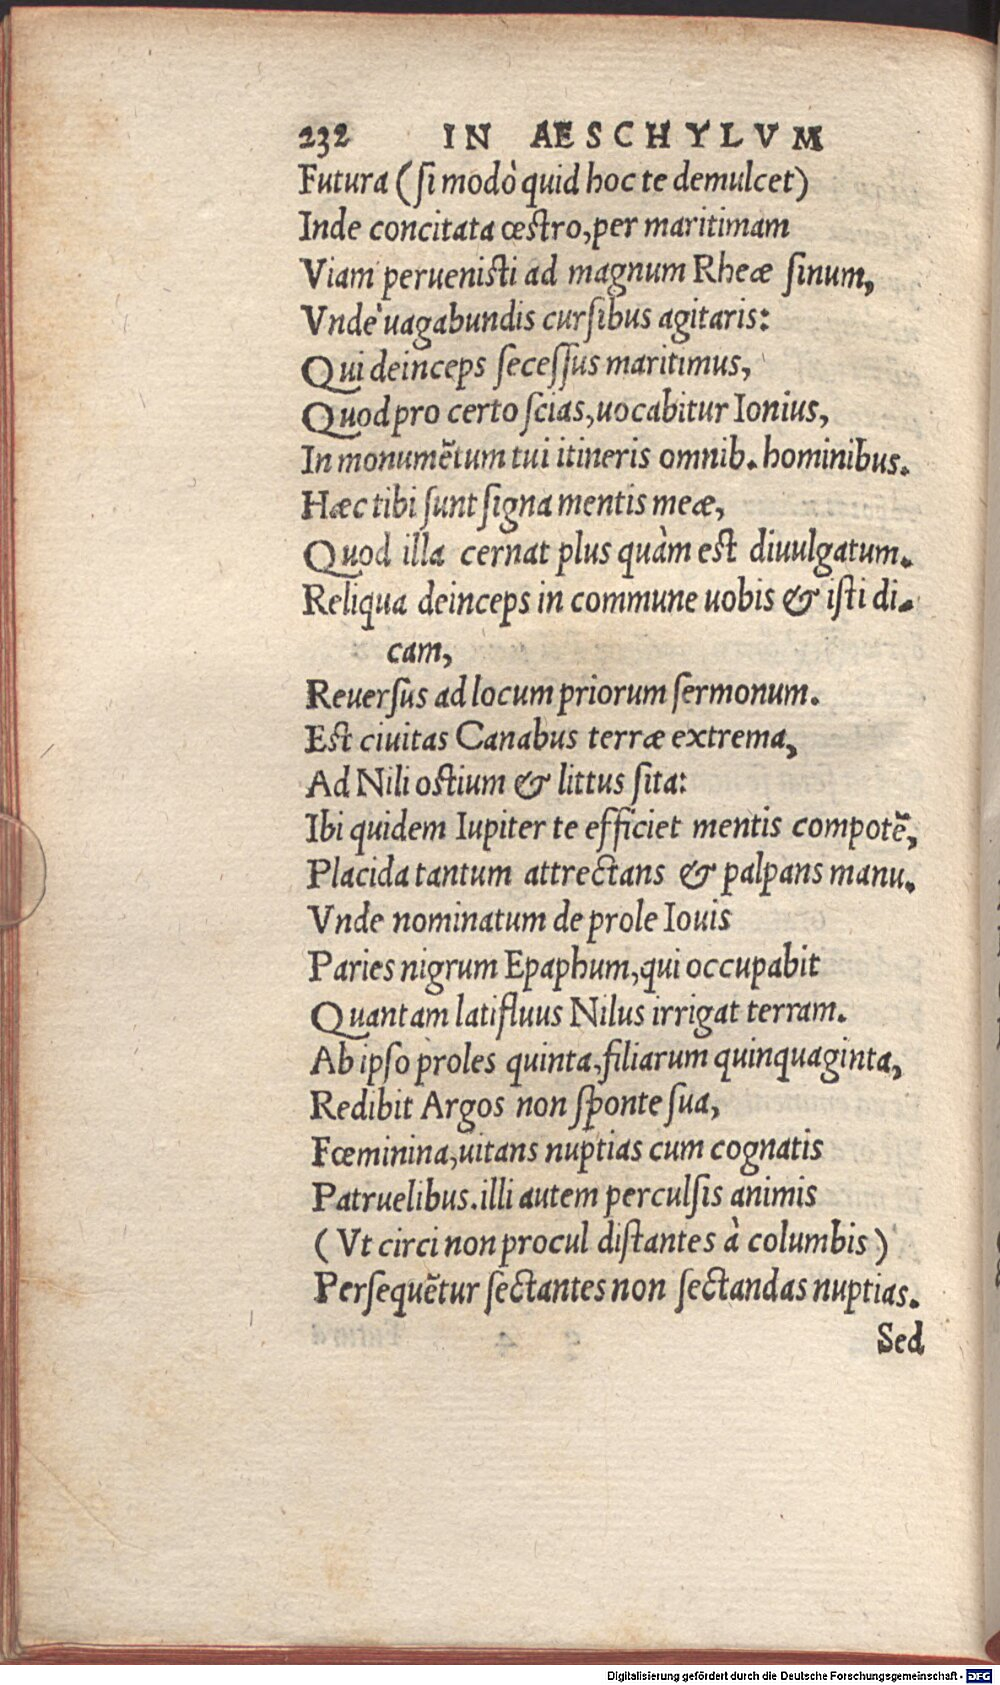 232 IN AESCHYLVM
Futura (si modò quid hoc te demulcet)
Inde concitata œstro, per maritimam
Viam peruenisti ad magnum Rheæ sinum,
Vnde uagabundis cursibus agitaris:
Qui deinceps secessus maritimus,
Quod pro certo scias, uocabitur Ionius,
In monumẽtum tui itineris omnib. hominibus.
Hæc tibi sunt signa mentis meæ,
Quod illa cernat plus quàm est diuulgatum.
Reliqua deinceps in commune uobis & isti di-
cam,
Reuersus ad locum priorum sermonum.
Est ciuitas Canabus terræ extrema,
Ad Nili ostium & littus sita:
Ibi quidem Iupiter te efficiet mentis compotẽ,
Placida tantum attrectans & palpans manu.
Vnde nominatum de prole Iouis
Paries nigrum Epaphum, qui occupabit
Quantam latifluus Nilus irrigat terram.
Ab ipso proles quinta, filiarum quinquaginta,
Redibit Argos non sponte sua,
Fœminina, uitans nuptias cum cognatis
Patruelibus. illi autem perculsis animis
(Vt circi non procul distantes à columbis)
Persequẽtur sectantes non sectandas nuptias.
Sed
Digitalisierung gefördert durch die Deutsche Forschungsgemeinschaft - DFG